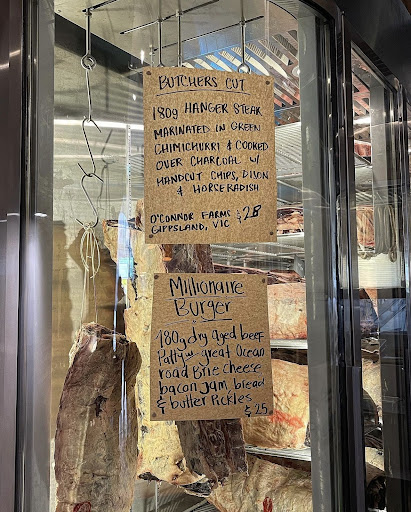 BUTCHERS CUT
180g HANGER STEAK
MARINATED IN GREEN
CHIMICHURRI & COOKED
OVER CHARCOAL W/
HANDCUT CHIPS, DIJON
& HORSERADISH
O'CONNOR FARMS $28
GIPPSLAND, VIC
Millionaire
Burger
180g dry aged beef
Patty w/ great Ocean
road Brie cheese
bacon jam, bread
& butter Pickles
$25